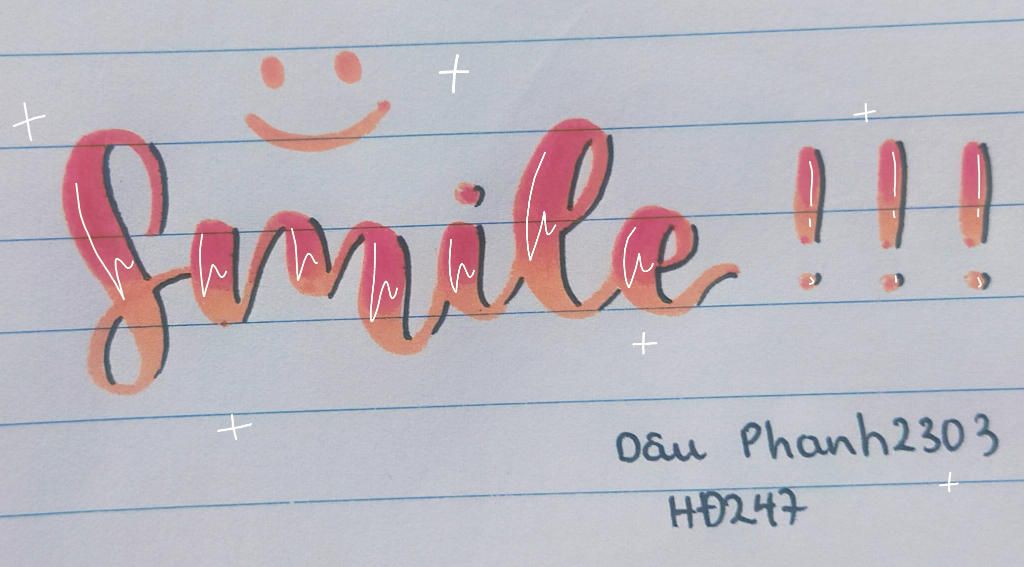 Smile !!!
Dâu Phanh2303
HĐ247